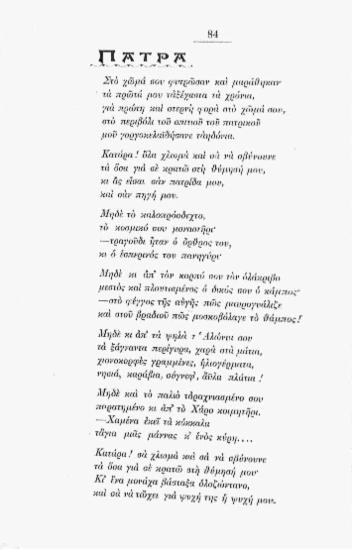 84
ΠΑΤΡΑ
Στὸ χῶμα σου φυτρῶσαν καὶ μαράθηκαν
τὰ πρῶτά μου τἀξέχαστα τὰ χρόνια,
γιὰ πρώτη καὶ στερνὴ φορὰ στὸ χῶμα σου,
στὸ περιβόλι τοῦ σπιτιοῦ τοῦ πατρικοῦ
μοῦ γοργοκελαϊδήσανε τἀηδόνια.
Κατάρα! ὅλα χλωμὰ καὶ σὰ νὰ σβύνουνε
τὰ ὅσα γιὰ σὲ κρατῶ στὴ θύμησή μου,
κι ἂς εἶσαι σὰν πατρίδα μου,
καὶ σὰν πηγή μου.
Μηδὲ τὸ καλοπρόσδεχτο,
τὸ κοσμικό σου μοναστῆρι·
—τραγοῦδι ἦταν ὁ ὄρθρος του,
κι ὁ ἑσπερινός του πανηγύρι·
Μηδὲ κι ἀπ' τὸν καρπό σου τὸν ὁλάκριβο
μεστὸς καὶ πλουτισμένος ὁ δικός σου ὁ κάμπος·
—στὸ φέγγος τῆς αὐγῆς πῶς μαυρογυάλιζε
καὶ στοῦ βραδιοῦ πῶς μοσκοβόλαγε τὸ θάμπος!
Μηδὲ κι ἀπ' τὰ ψηλὰ τ' Ἁλώνια σου
τὰ ξάγναντα περίγυρα, χαρὰ στὰ μάτια,
χιονοκορφὲς γραμμένες, ἡλιογέρματα,
νησιά, καράβια, σύγνεφ', ἄϋλα πλάτια!
Μηδὲ καὶ τὸ παλιὸ τἀραχνιασμένο σου
παρατημένο κι ἀπ' τὸ Χάρο κοιμητῆρι.
—Χαμένα ἐκεῖ τὰ κόκκαλα
τἅγια μιᾶς μάννας κ' ἑνὸς κύρη....
Κατάρα! σὰ χλωμὰ καὶ σὰ νὰ σβύνουνε
τὰ ὅσα γιὰ σὲ κρατῶ στὴ θύμησή μου·
Κι' ἕνα μονάχα βάσταξα ὁλοζώντανο,
καὶ σὰ νὰ τὤχει γιὰ ψυχή της ἡ ψυχή μου.